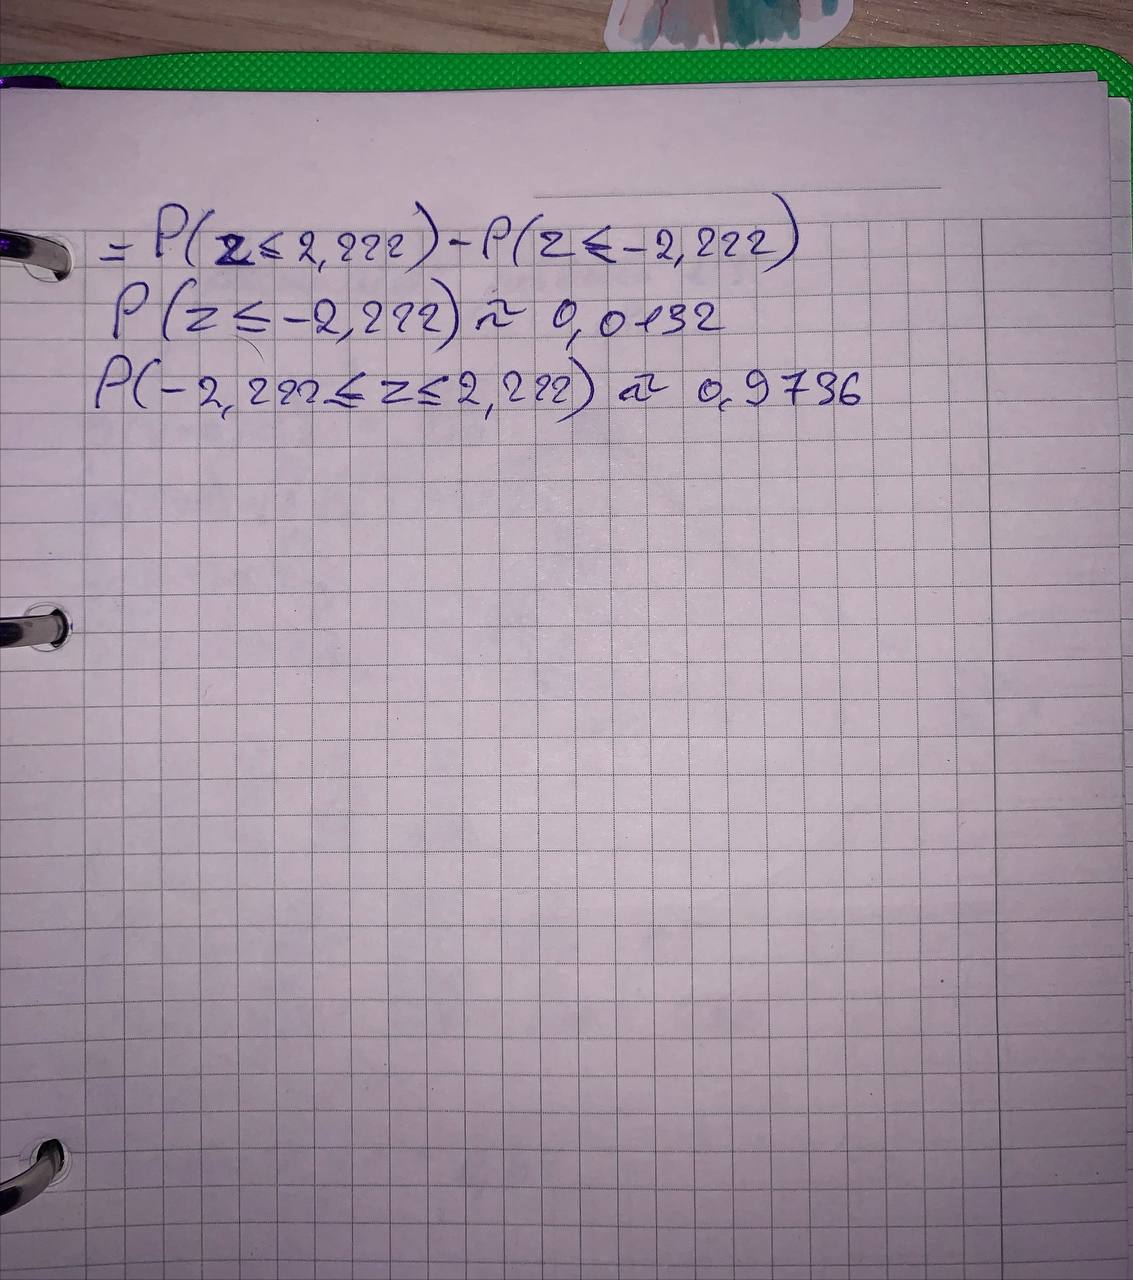 = P(z ≤ 2,222) - P(z ≤ -2,222)
P(z ≤ -2,222) ≈ 0,0132
P(-2,222 ≤ z ≤ 2,222) ≈ 0,9736